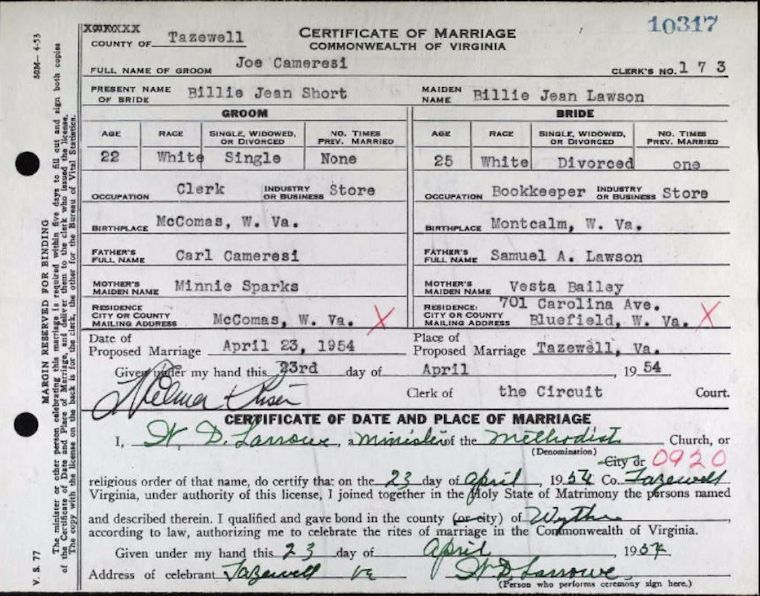 10317
XXXXXXXX
COUNTY OF Tazewell
CERTIFICATE OF MARRIAGE
COMMONWEALTH OF VIRGINIA
FULL NAME OF GROOM Joe Cameresi CLERK'S NO. 173
PRESENT NAME OF BRIDE Billie Jean Short MAIDEN NAME Billie Jean Lawson
GROOM BRIDE
AGE RACE SINGLE, WIDOWED, OR DIVORCED NO. TIMES PREV. MARRIED AGE RACE SINGLE, WIDOWED, OR DIVORCED NO. TIMES PREV. MARRIED
22 White Single None 25 White Divorced one
OCCUPATION Clerk INDUSTRY OR BUSINESS Store OCCUPATION Bookkeeper INDUSTRY OR BUSINESS Store
BIRTHPLACE McComas, W. Va. BIRTHPLACE Montcalm, W. Va.
FATHER'S FULL NAME Carl Cameresi FATHER'S FULL NAME Samuel A. Lawson
MOTHER'S MAIDEN NAME Minnie Sparks MOTHER'S MAIDEN NAME Vesta Bailey
RESIDENCE CITY OR COUNTY MAILING ADDRESS McComas, W. Va. X RESIDENCE: CITY OR COUNTY MAILING ADDRESS 701 Carolina Ave. Bluefield, W. Va. X
Date of Proposed Marriage April 23, 1954 Place of Proposed Marriage Tazewell, Va.
Given under my hand this 23rd day of April, 1954
Clerk of the Circuit Court.
CERTIFICATE OF DATE AND PLACE OF MARRIAGE
I, W. D. Larrowe, a minister of the Methodist Church, or
(Denomination)
City or 0920
religious order of that name, do certify that on the 23 day of April, 1954 Co. Tazewell
Virginia, under authority of this license, I joined together in the Holy State of Matrimony the persons named
and described therein. I qualified and gave bond in the county (or city) of Wythe,
according to law, authorizing me to celebrate the rites of marriage in the Commonwealth of Virginia.
Given under my hand this 23 day of April 1954
Address of celebrant Tazewell Va W D Larrowe
(Person who performs ceremony sign here.)
V. S. 77
50M—4-53
MARGIN RESERVED FOR BINDING
The minister or other person celebrating this marriage is required within five days to fill out and sign both copies
of the Certificate of Date and Place of Marriage, and deliver them to the clerk who issued the license.
The copy with the license on the back is for the clerk, the other for the Bureau of Vital Statistics.